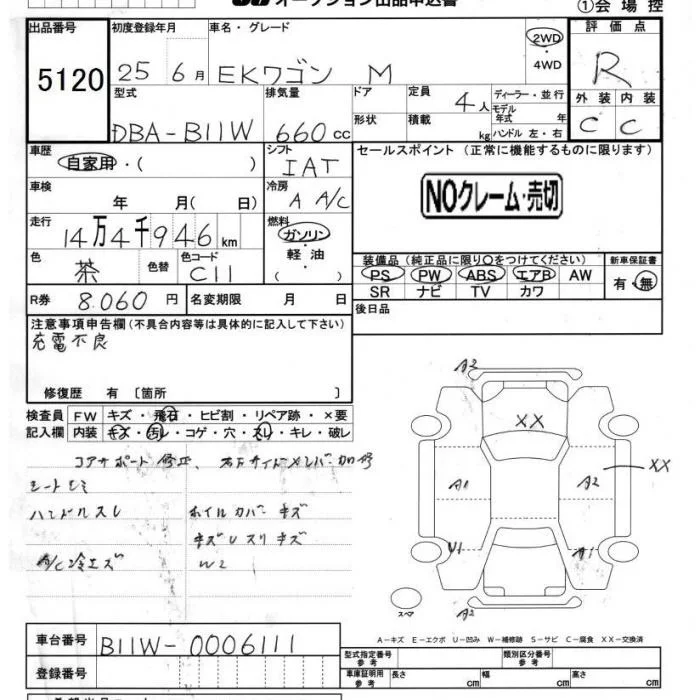 オークション出品申込書
①会場控
出品番号 初度登録年月 車名・グレード 評価点
5120 25 6月 EKワゴン M 2WD・4WD R
型式 排気量 ドア 定員 ディーラー・並行 外装 内装
DBA-B11W 660cc 4人 モデル年式 年 C C
形状 積載 kg ハンドル 左・右
車歴 シフト セールスポイント (正常に機能するものに限ります)
自家用・( ) IAT
NOクレーム・売切
車検 冷房
年 月( 日) A A/C
走行 燃料
14万4千946km ガソリン・軽油・( )
色 色替 色コード 装備品 (純正品に限り○をつけてください) 新車保証書
茶 C11 PS PW ABS エアB AW 有・無
SR ナビ TV カワ
R券 8.060円 名変期限 月 日 後日品
注意事項申告欄(不具合内容等は具体的に記入して下さい)
充電不良
修復歴 有 〔箇所 〕
検査員 FW キズ・飛石・ヒビ割・リペア跡・×要
記入欄 内装 キズ・汚レ・コゲ・穴・スレ・キレ・破レ
コアサポート修正、
ハンドルスレ ホイルカバーキズ
キズUスリキズ
W2
A2
XX
A1 A2 XX
U1 A1
スペア A2
A-キズ E-エクボ U-凹み W-補修跡 S-サビ C-腐食 XX-交換済
車台番号 B11W-0006111
登録番号
型式指定番号 参考 類別区分番号 参考
車庫証明用 参考 長さ cm 幅 cm 高さ cm